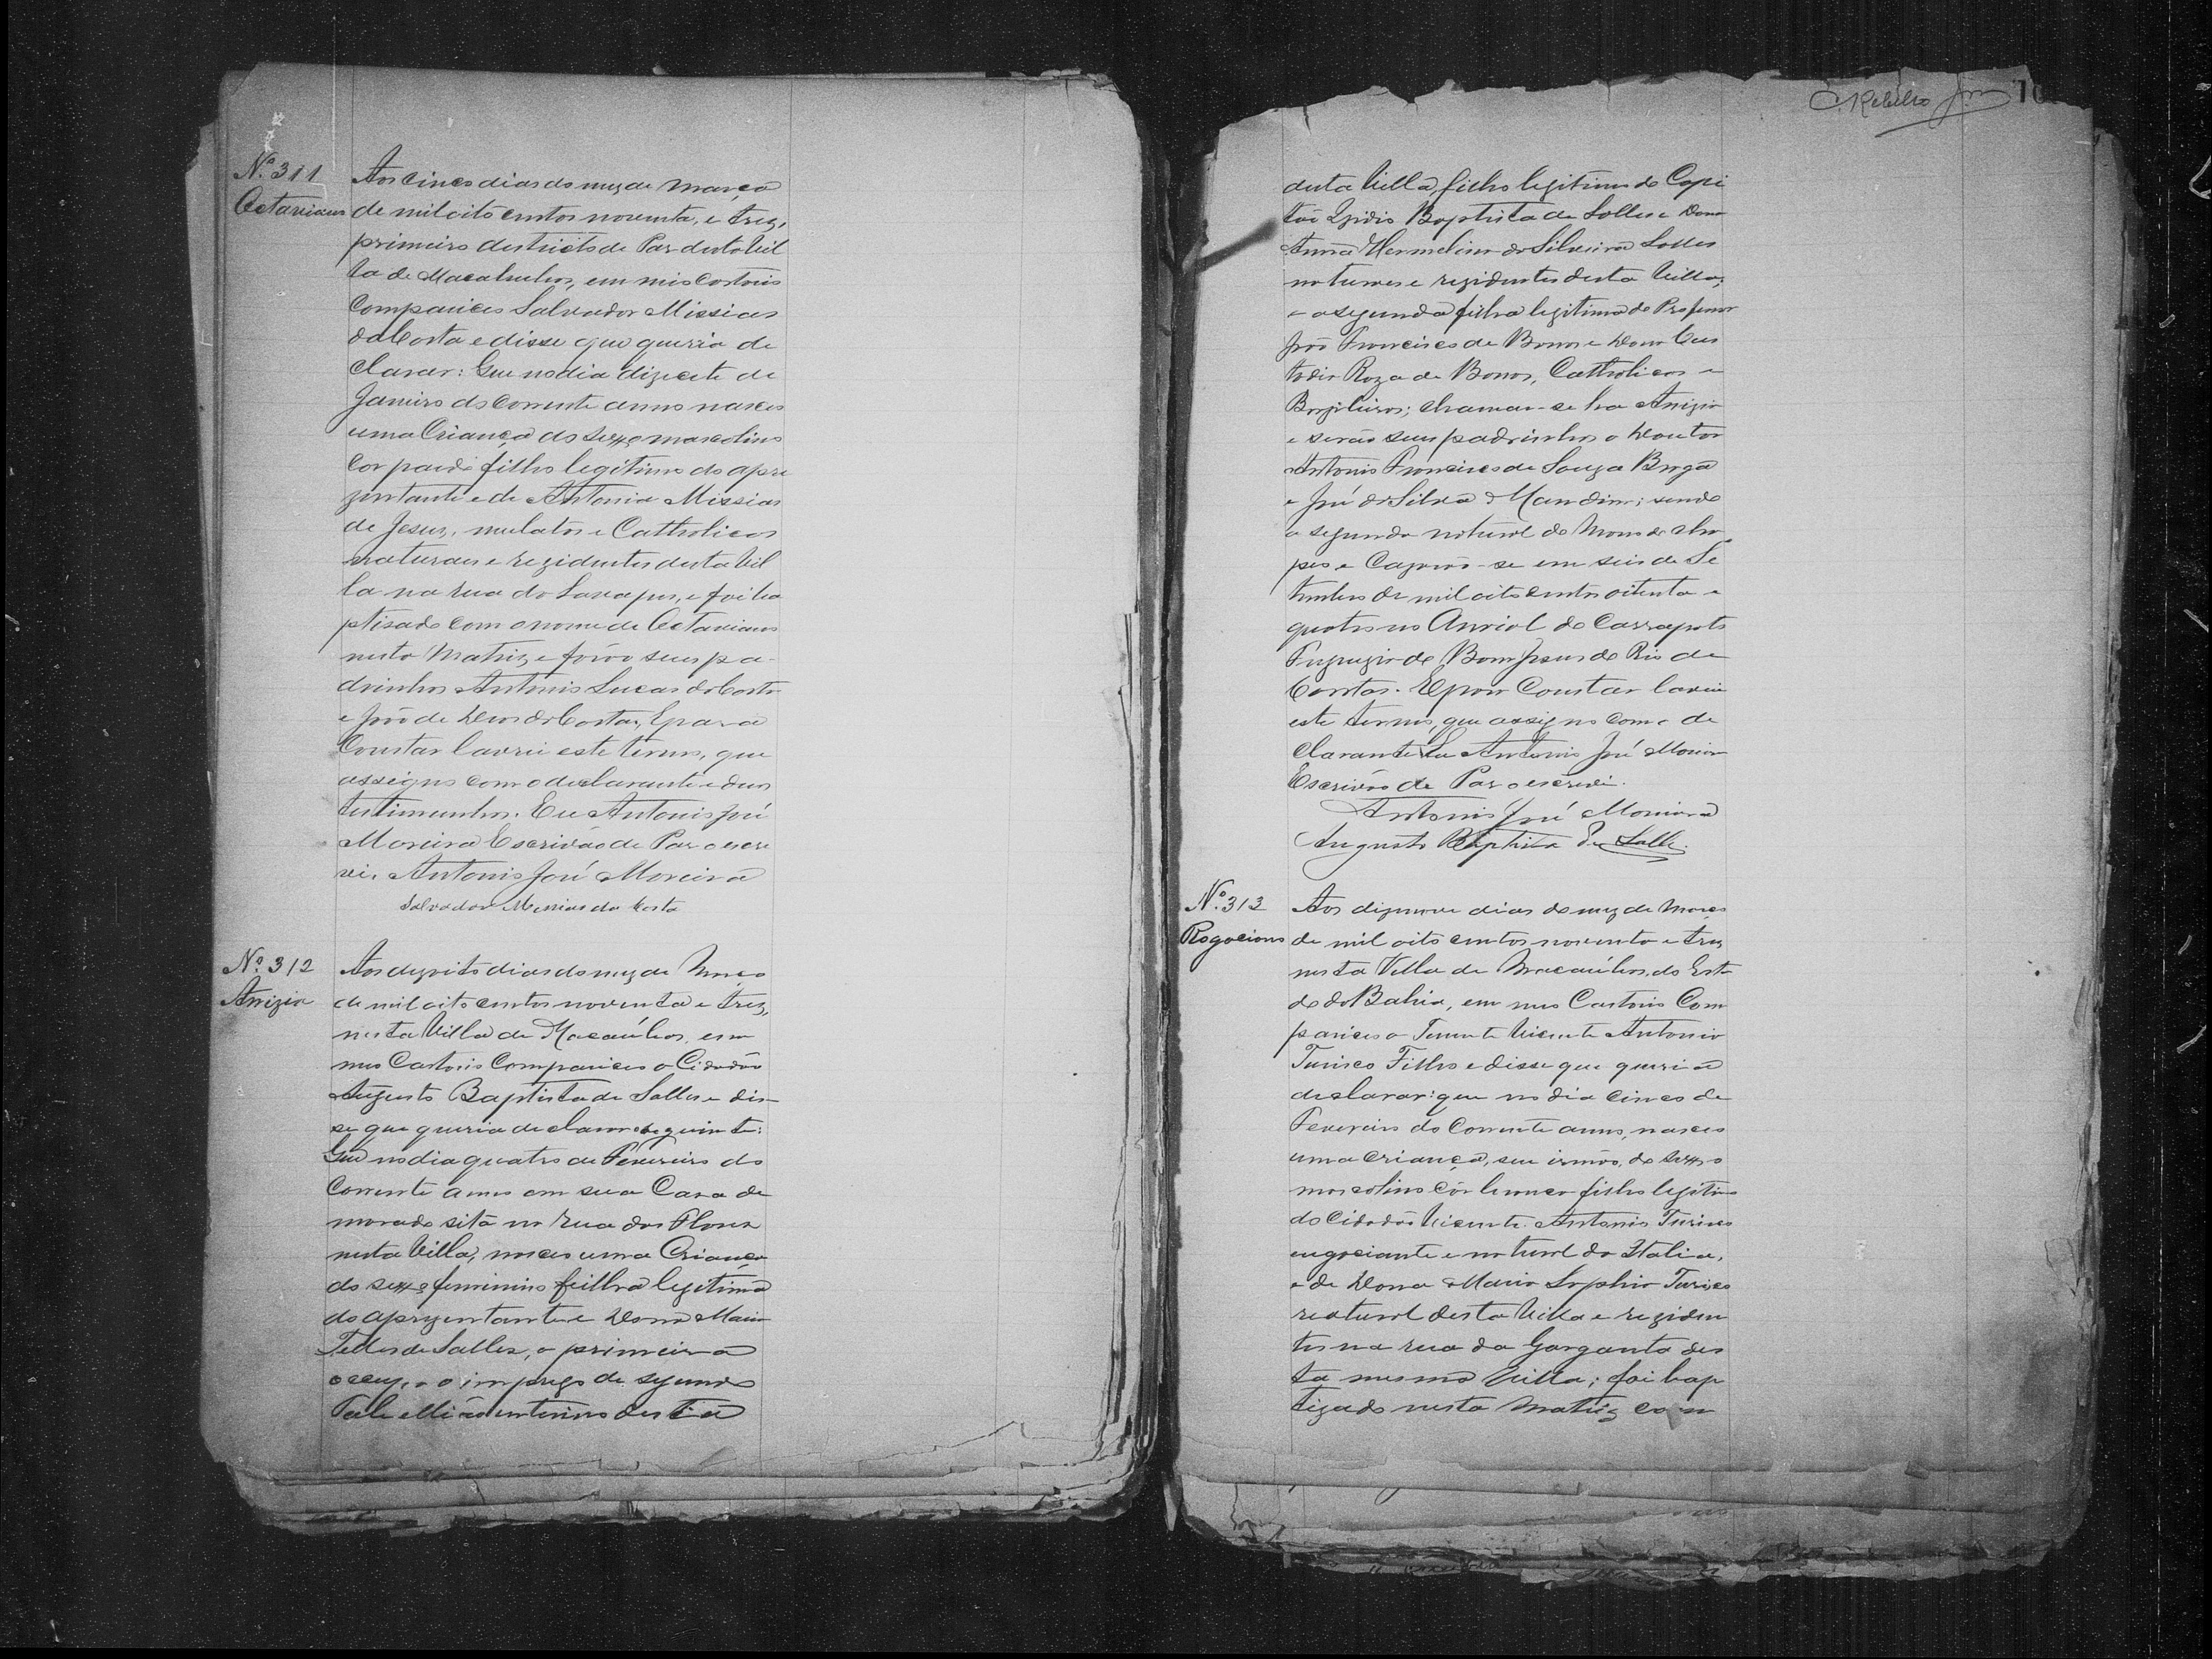 Nº 311
Octaviano
Aos cinco dias do mez de março
de mil oito centos noventa, e trez,
primeiro destricto de Paz desta Vil
la de Macahubas, em meo Cartorio
Compareceo Salvador Missias
da Costa e disse que queria de
clarar: Que no dia dizecete de
Janeiro do Corrente anno nasceo
uma Criança do sexxo mascolino
Cor parda filho legitimo do apre
zentante e de Antonia Missias
de Jesus, mulatos e Catholicos
naturaes e rezidentes desta Vil
la na rua do e foi ba
ptisado com o nome de Octaviano
nesta Matriz, e forão seus pa-
drinhos Antonio Lucas da Costa
e João de Deos da Costa, E para
Constar lavrei este termo, que
assigno com o declarante e duas
testimunhas. Eu Antonio José
Moreira Escrivão de Paz o escre
vi. Antonio José Moreira
Salvador Messias da Costa
Nº 312
Anizia
Aos dezoito dias do mez de Março
de mil oito centos noventa e trez,
nesta Villa de Macaúbas, em
meo Cartorio Compareceo o Cidadão
Augusto Baptista de Salles e dis-
se que queria declarar o seguinte:
Que no dia quatro de Fevereiro do
Corrente anno em sua Casa de
morada sitá na rua das Flores
nesta Villa, nasceo uma Criança
do sexxo feminino filha legitima
do aprezentante e Dona Maria
Telles de Salles, o primeiro
occupa o imprego de segundo
Tabellião interino desta
desta Villa, filho legitimo do Capi
tão Baptista de Salles e Dona
Anna Hermelina da Silveira Salles
naturaes e rezidentes desta Villa;
e a segunda filha legitima do Professor
João Francisco de Barros e Dona Cus
todia Roza de Barros, Catholicos e
Brazileiros; chamar-se ha Anizia
e serão seus padrinhos o Doutor
Antonio Francisco de Souza Braga
e José da Silva Mandim; sendo
a segunda natural do Morro do Cha
peo e Cazarão-se em seis de Se
tembro de mil oito centos oitenta e
quatro no Arrial do Carrapato
Freguezia do Bom Jesus do Rio de
Contas. E para Constar lavrei
este termo, que assigno com o de
clarante Eu Antonio José Moreira
Escrivão de Paz o escrevi.
Antonio José Moreira
Augusto Baptista de Salles
Nº 313
Rogaciano
Aos dizenove dias do mez de Março
de mil oito centos noventa e trez
nesta Villa de Macaúbas, do Esta
do da Bahia, em meo Cartorio Com
pareceo o Tenente Vicente Antonio
Tunico Filho e disse que queria
declarar: que no dia cinco de
Fevereiro do Corrente anno, nasceo
uma criança, seu irmão, do sexxo
mascolino côr branca filho legitimo
do Cidadão Vicente Antonio Tunico
negociante e natural da Italia,
e de Dona Maria Sophia Tunico
natural desta Villa e reziden
tes na rua da Garganta des
ta mesma Villa; foi bap
tizado nesta Matriz com